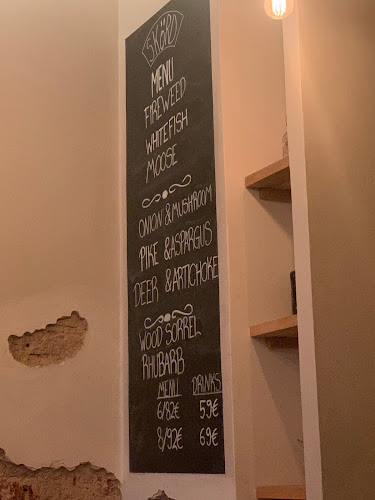 SKÖRD
MENU
FIREWEED
WHITEFISH
MOOSE
ONION & MUSHROOM
PIKE & ASPARGUS
DEER & ARTICHOKE
WOOD SORREL
RHUBARB
MENU DRINKS
6/82€ 59€
8/92€ 69€